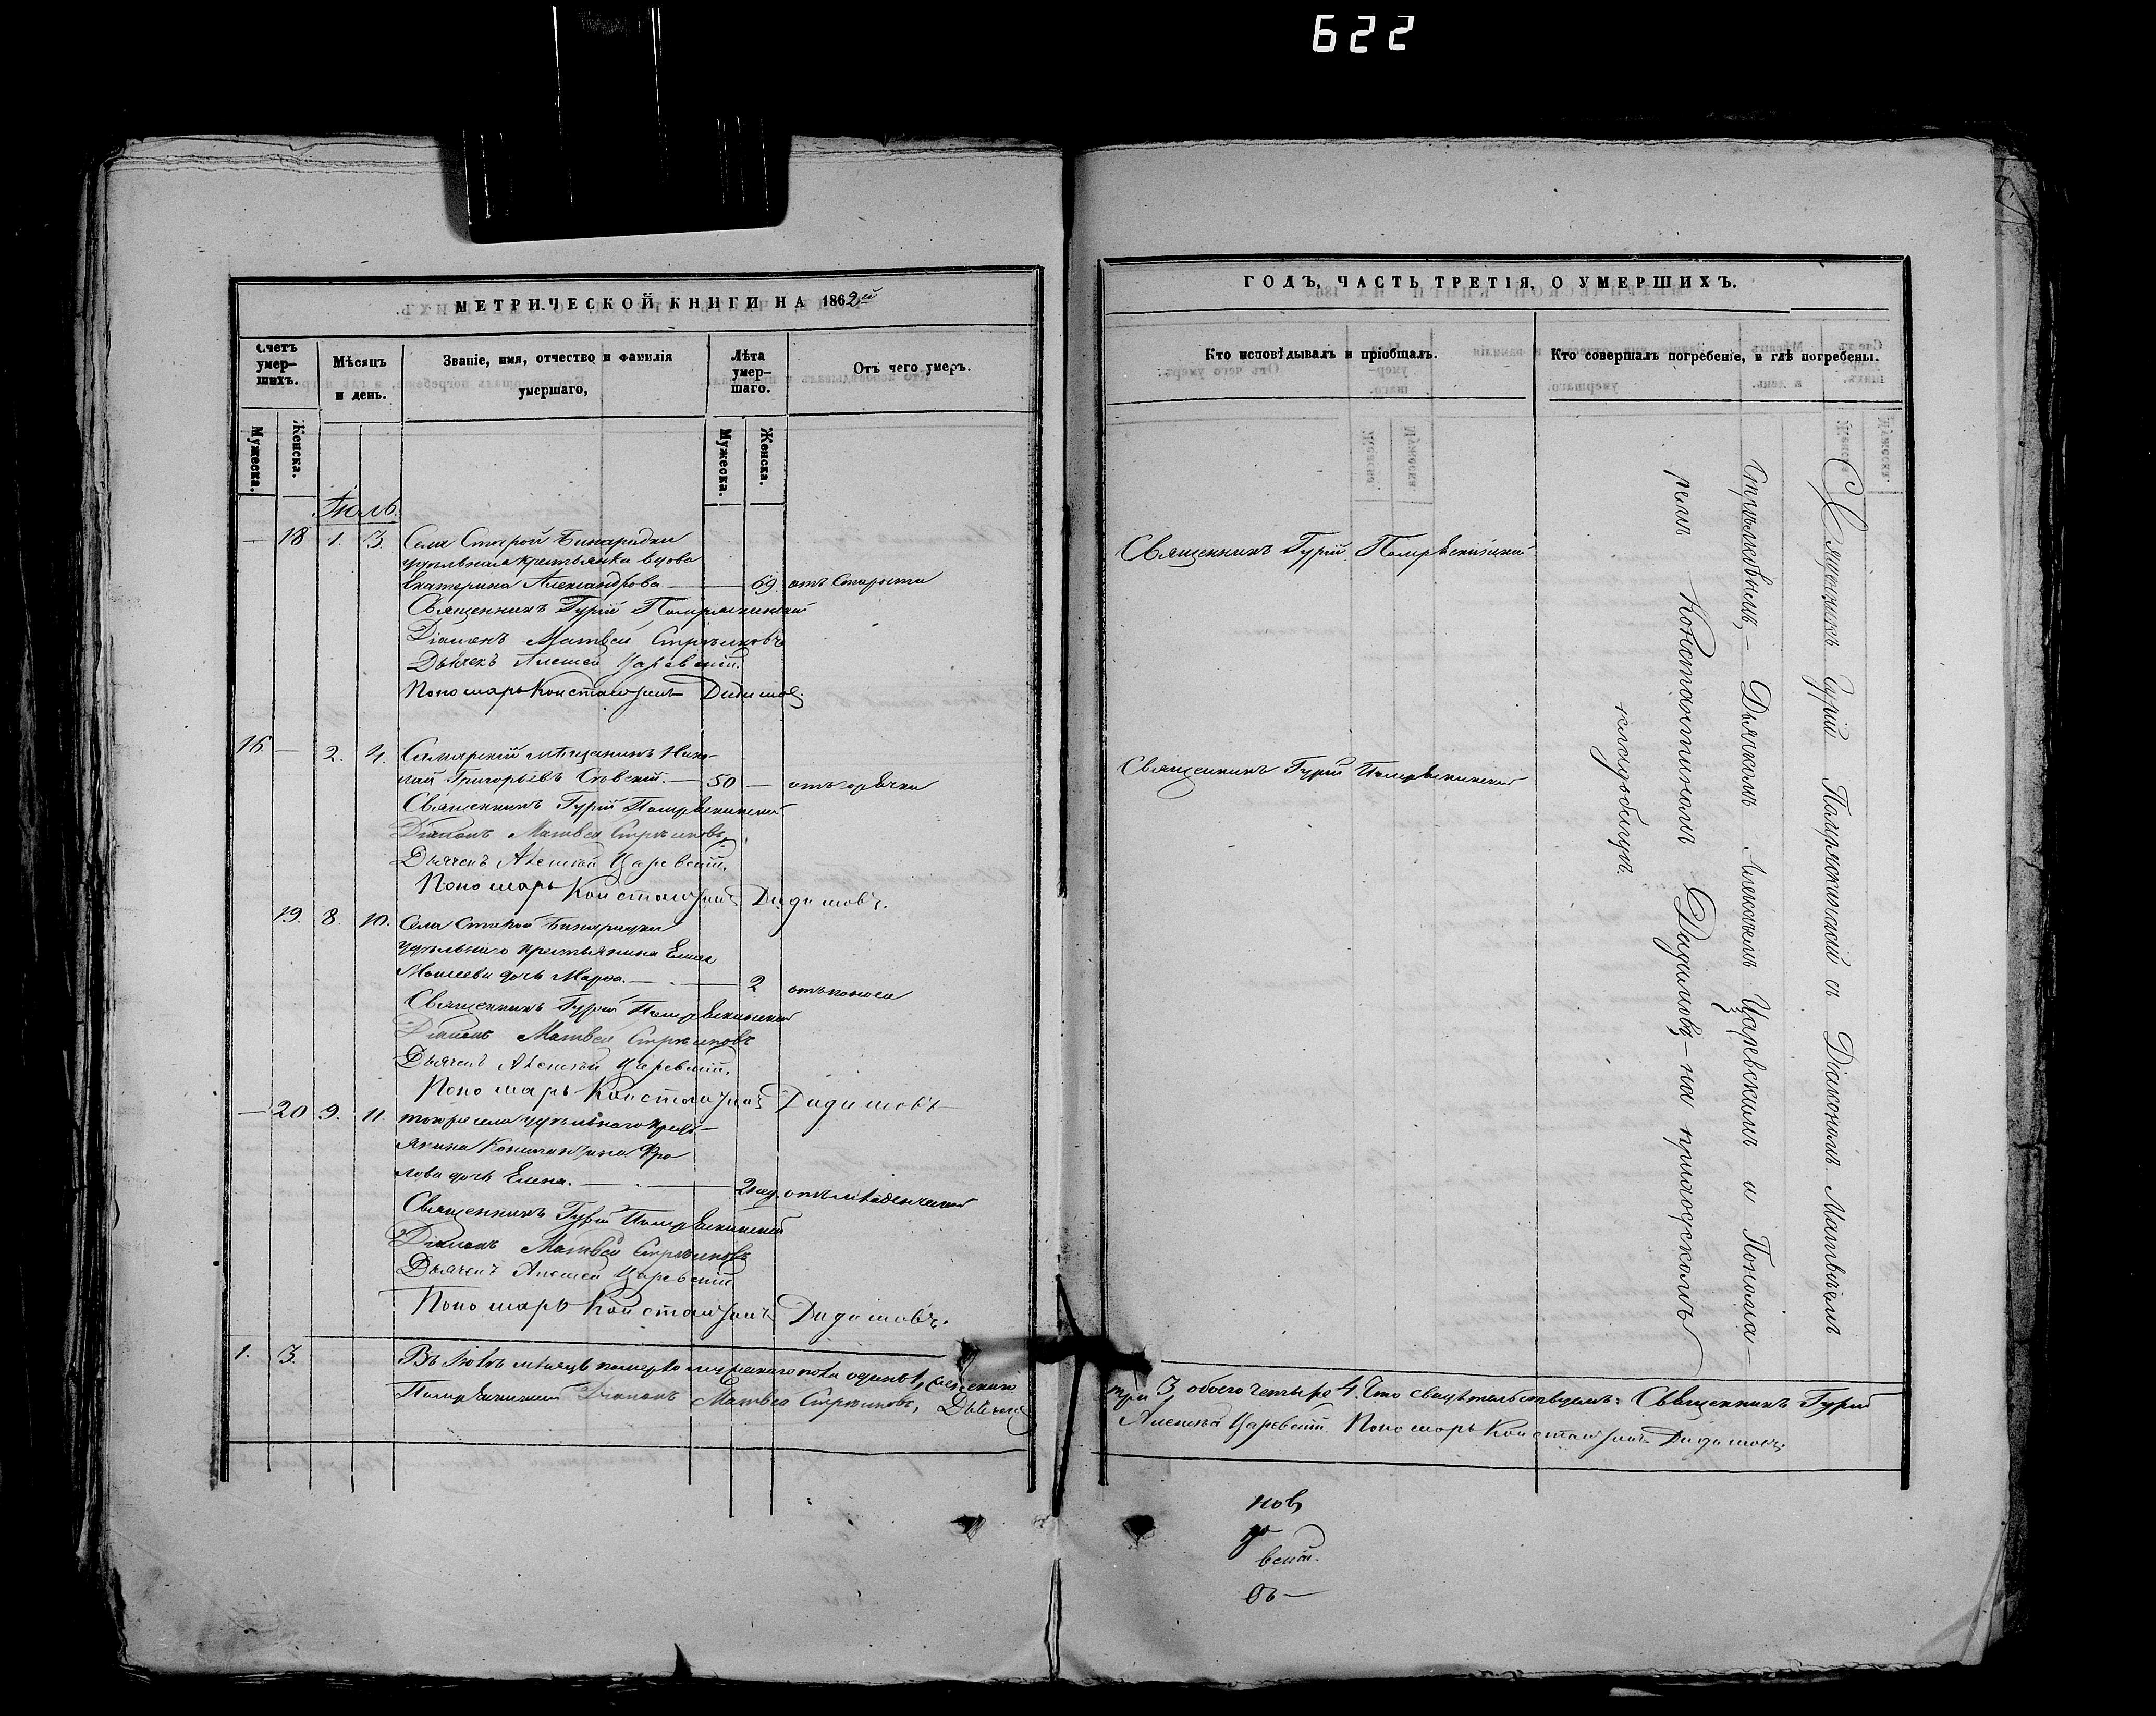 622
МЕТРИЧЕСКОЙ КНИГИ НА 1862й
Счетъ умер-шихъ.
Мѣсяцъ и день.
Званіе, имя, отчество и фамилія умершаго,
Лѣта умер-шаго.
Отъ чего умеръ.
Мужеска.
Женска.
Мужеска.
Женска.
Іюль.
— 18 1. 3. Села Старой Бинарадки
удѣльная крестьянка вдова
Екатерина Александрова. — 69. отъ старости
Священникъ Гурій
Діаконъ Матвей Стрѣлковъ
Дьячекъ Алексей Царевскій.
Пономарь Константинъ Дидимов.
16 — 2. 4. Самарскій мѣщанинъ Нико-
лай Григорьевъ — 50 — отъ горячки
Священникъ Гурій
Діаконъ Матвей Стрѣлковъ,
Дьячекъ Алексей Царевскій.
Пономарь Константинъ Дидимовъ.
19. 8. 10. Села Старой Бинарадки
удѣльнаго крестьянина
Моисеева дочь Марѳа. — 2 отъ поноса
Священникъ Гурій
Діаконъ Матвей Стрѣлковъ
Дьячекъ Алексей Царевскій.
Пономарь Константинъ Дидимовъ
— 20 9. 11. тогоже села удѣльнаго кресть-
янина Константина Фро
лова дочь Елена. — 2 нед. отъ младенческой
Священникъ Гурій
Діаконъ Матвей Стрѣлковъ
Дьячекъ Алексей Царевскій
Пономарь Константинъ Дидимовъ.
1. 3. Въ Іюлѣ мѣсяцѣ померло мужескаго пола одинъ 1, женскаго
Діаконъ Матвей Стрѣлковъ, Дьячекъ
ГОДЪ, ЧАСТЬ ТРЕТІЯ, О УМЕРШИХЪ.
Кто исповѣдывалъ и пріобщалъ.
Кто совершалъ погребеніе, и гдѣ погребены.
Священникъ Гурій
Священникъ Гурій
Священникъ Гурій с Діакономъ Матвѣемъ
Стрѣлковымъ, — Дьячкомъ Алексѣемъ Царевскимъ и Понома-
ремъ Константиномъ Дидимовъ, — на приходскомъ
кладбищѣ.
три 3, обоего четыре 4. Что свидѣтельствуемъ: Священникъ Гурій
Алексей Царевскій Пономарь Константинъ Дидимовъ.
нов,
вскій.
въ —